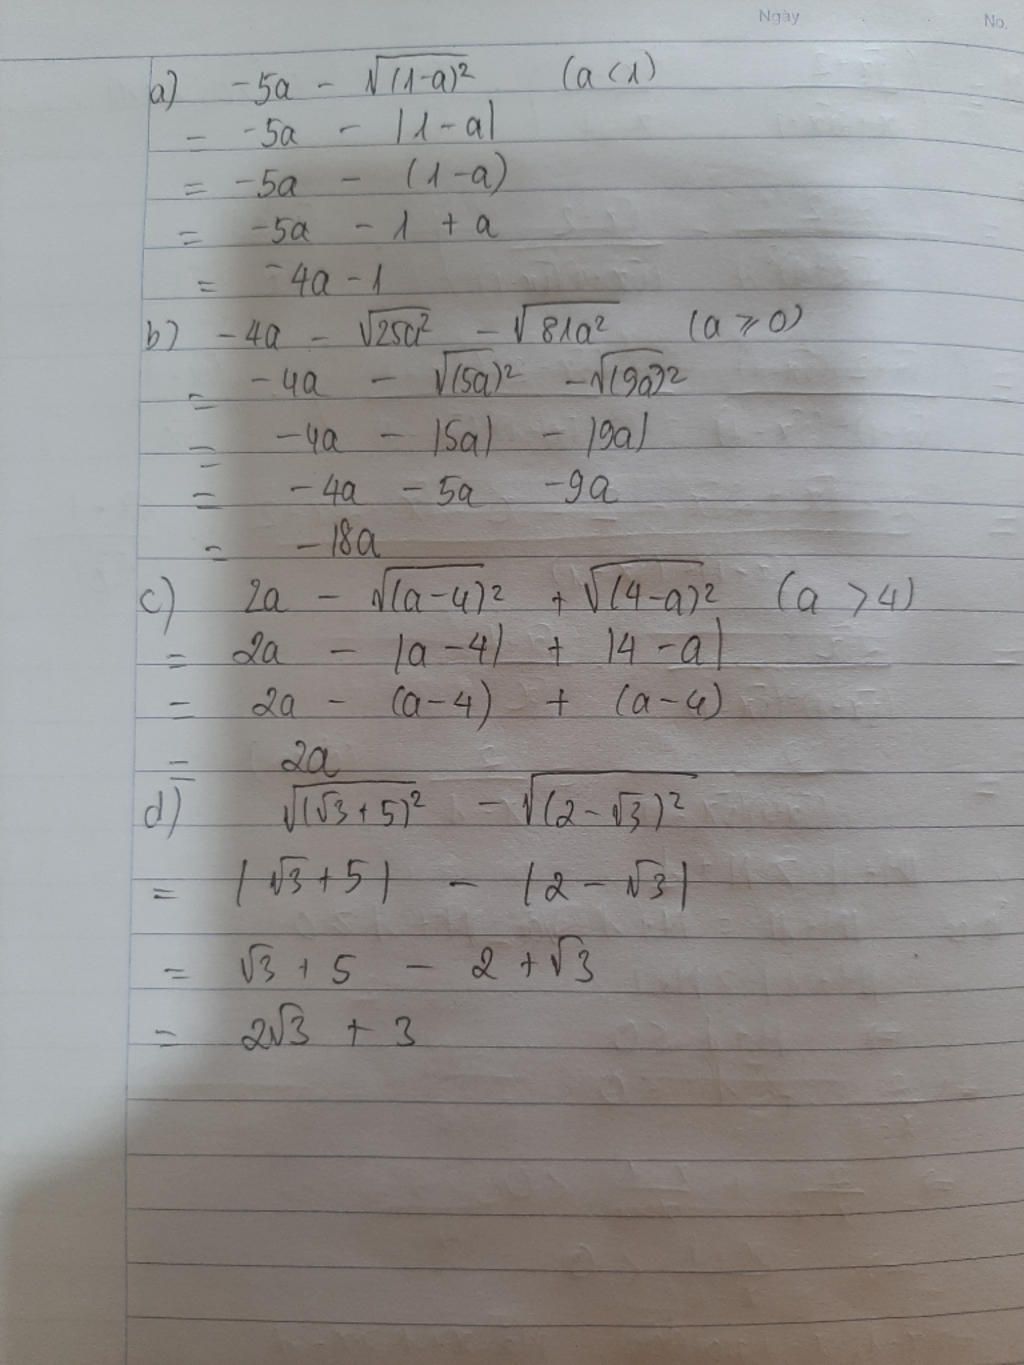 Ngày No.
a) -5a - √(1-a)² (a < 1)
= -5a - |1-a|
= -5a - (1-a)
= -5a - 1 + a
= -4a - 1
b) -4a - √25a² - √81a² (a ⩾ 0)
= -4a - √(5a)² - √(9a)²
= -4a - |5a| - |9a|
= -4a - 5a - 9a
= -18a
c) 2a - √(a-4)² + √(4-a)² (a > 4)
= 2a - |a-4| + |4-a|
= 2a - (a-4) + (a-4)
= 2a
d) √(√3+5)² - √(2-√3)²
= |√3+5| - |2-√3|
= √3 + 5 - 2 + √3
= 2√3 + 3